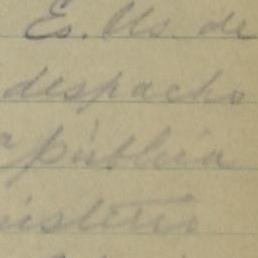 Es. Us. de
despacho
pública
nisterio